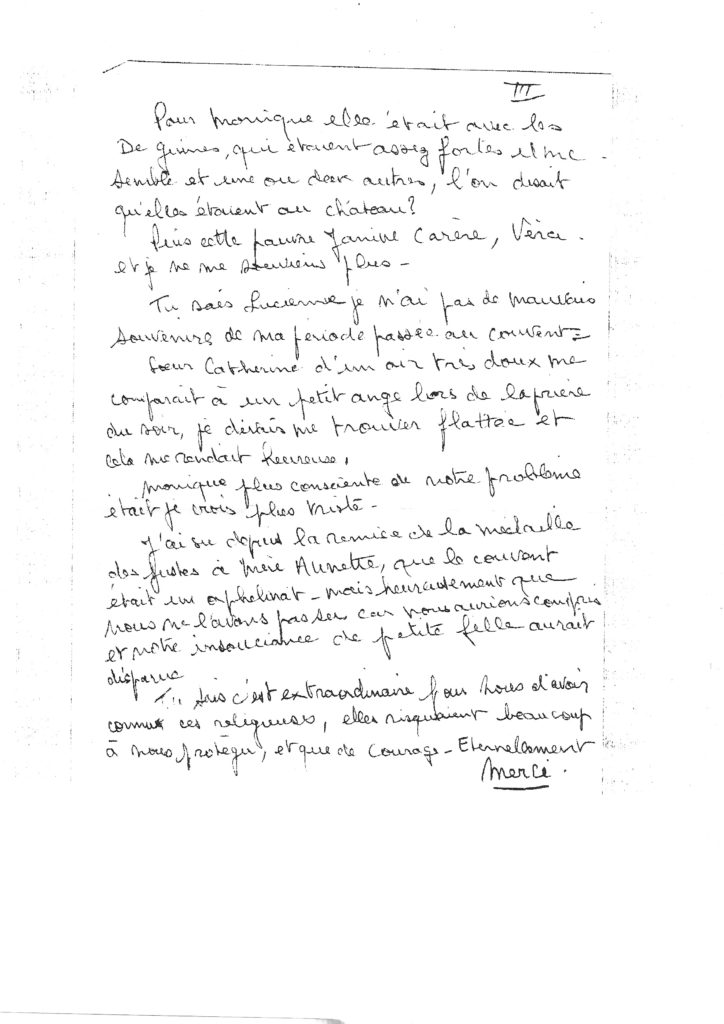 III
Pour Monique elle était avec les
De Guines, qui étaient assez fortes il me
semble et une ou deux autres, l'on disait
qu'elles étaient au château?
Puis cette pauvre Janine Carère, Véra.
et je ne me souviens plus -
Tu sais Lucienne je n'ai pas de mauvais
souvenirs de ma période passée au couvent =
Sœur Catherine d'un air très doux me
comparait à un petit ange lors de la prière
du soir, je devais me trouver flattée et
cela me rendait heureuse,
Monique plus consciente de notre problème
était je crois plus triste -
J'ai su depuis la remise de la médaille
des Justes à Mère Annette, que le couvent
était un orphelinat - mais heureusement que
nous ne l'avons pas su car nous aurions compris
et notre insouciance de petite fille aurait
disparue
sais c'est extraordinaire pour nous d'avoir
connues ces religieuses, elles risquaient beaucoup
à nous protéger, et que de courage - Eternellement
Merci.